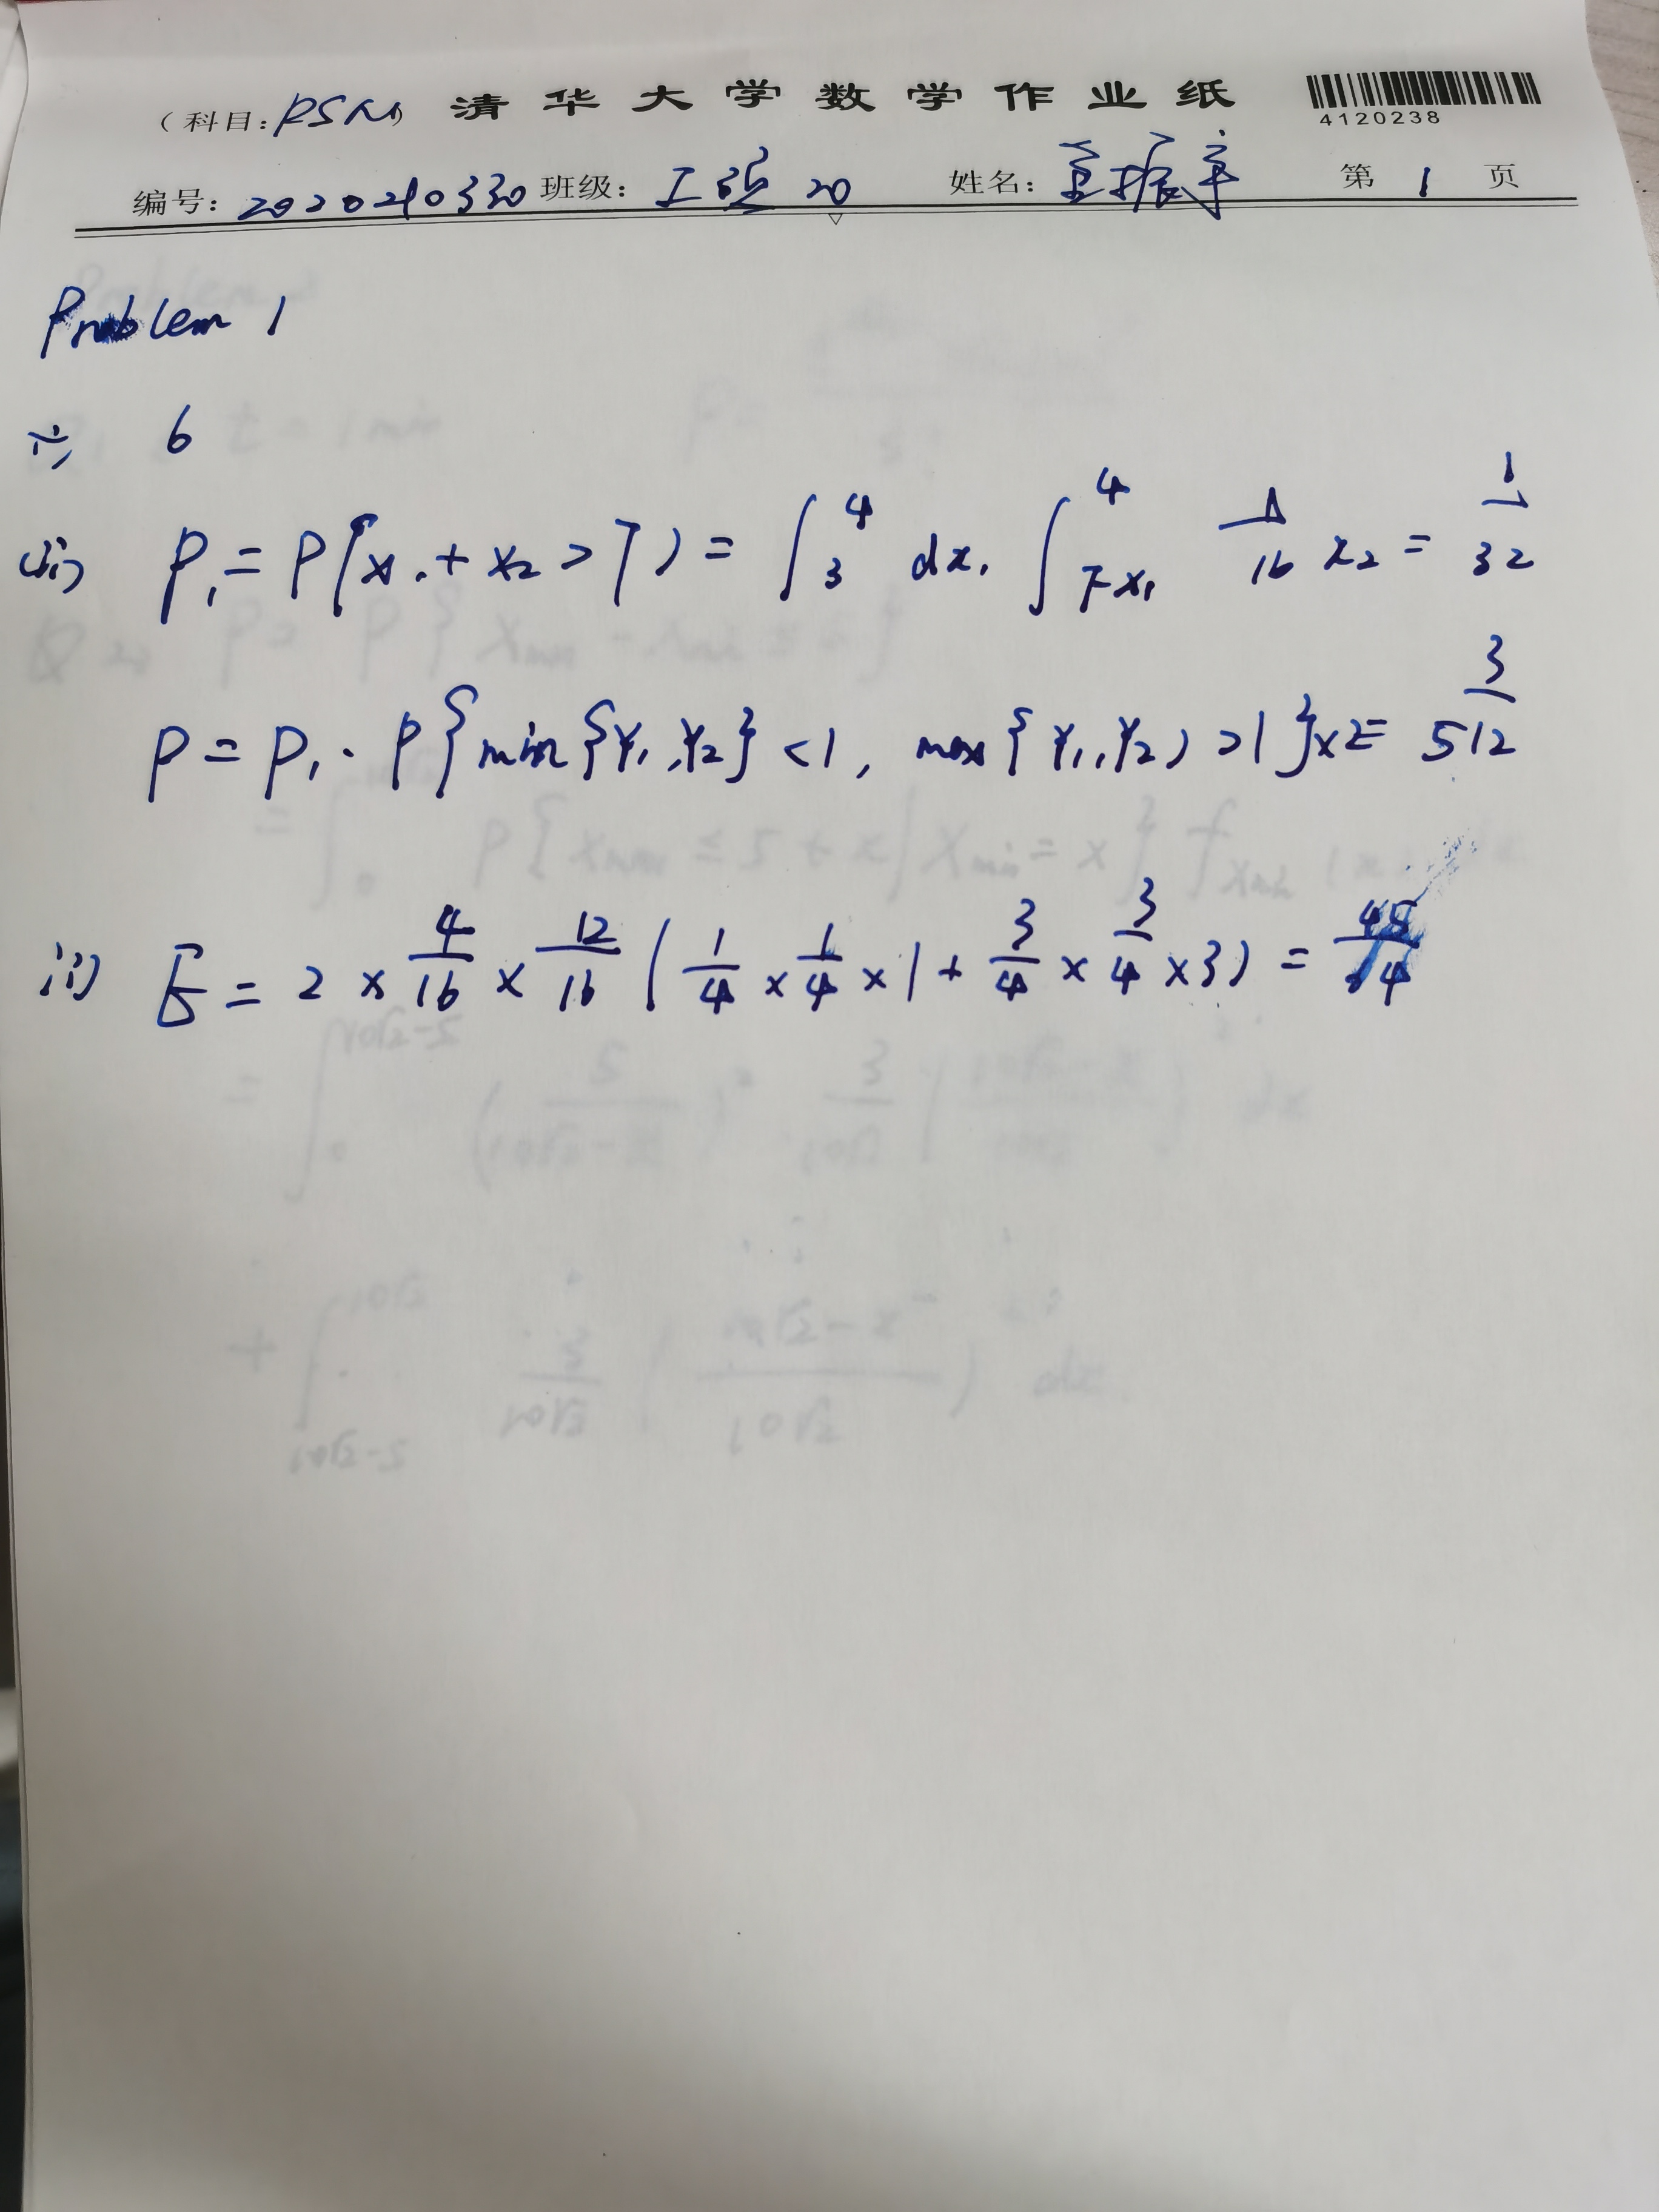 (科目: PSM) 清华大学数学作业纸
4120238
编号: 2020210330 班级: 工硕 20 姓名: 第 1 页
Problem 1
i) 6
ii) P₁ = P(x₁ + x₂ > 7) = ∫₃⁴ dx₁ ∫_{7-x₁}^4 1/16 x₂ = 1/32
P = P₁ · P{min{Y₁,Y₂} < 1, max{Y₁,Y₂) > 1}×2 = 3/512
iii) E = 2 × 4/16 × 12/16 ( 1/4 × 1/4 × 1 + 3/4 × 3/4 × 3) =